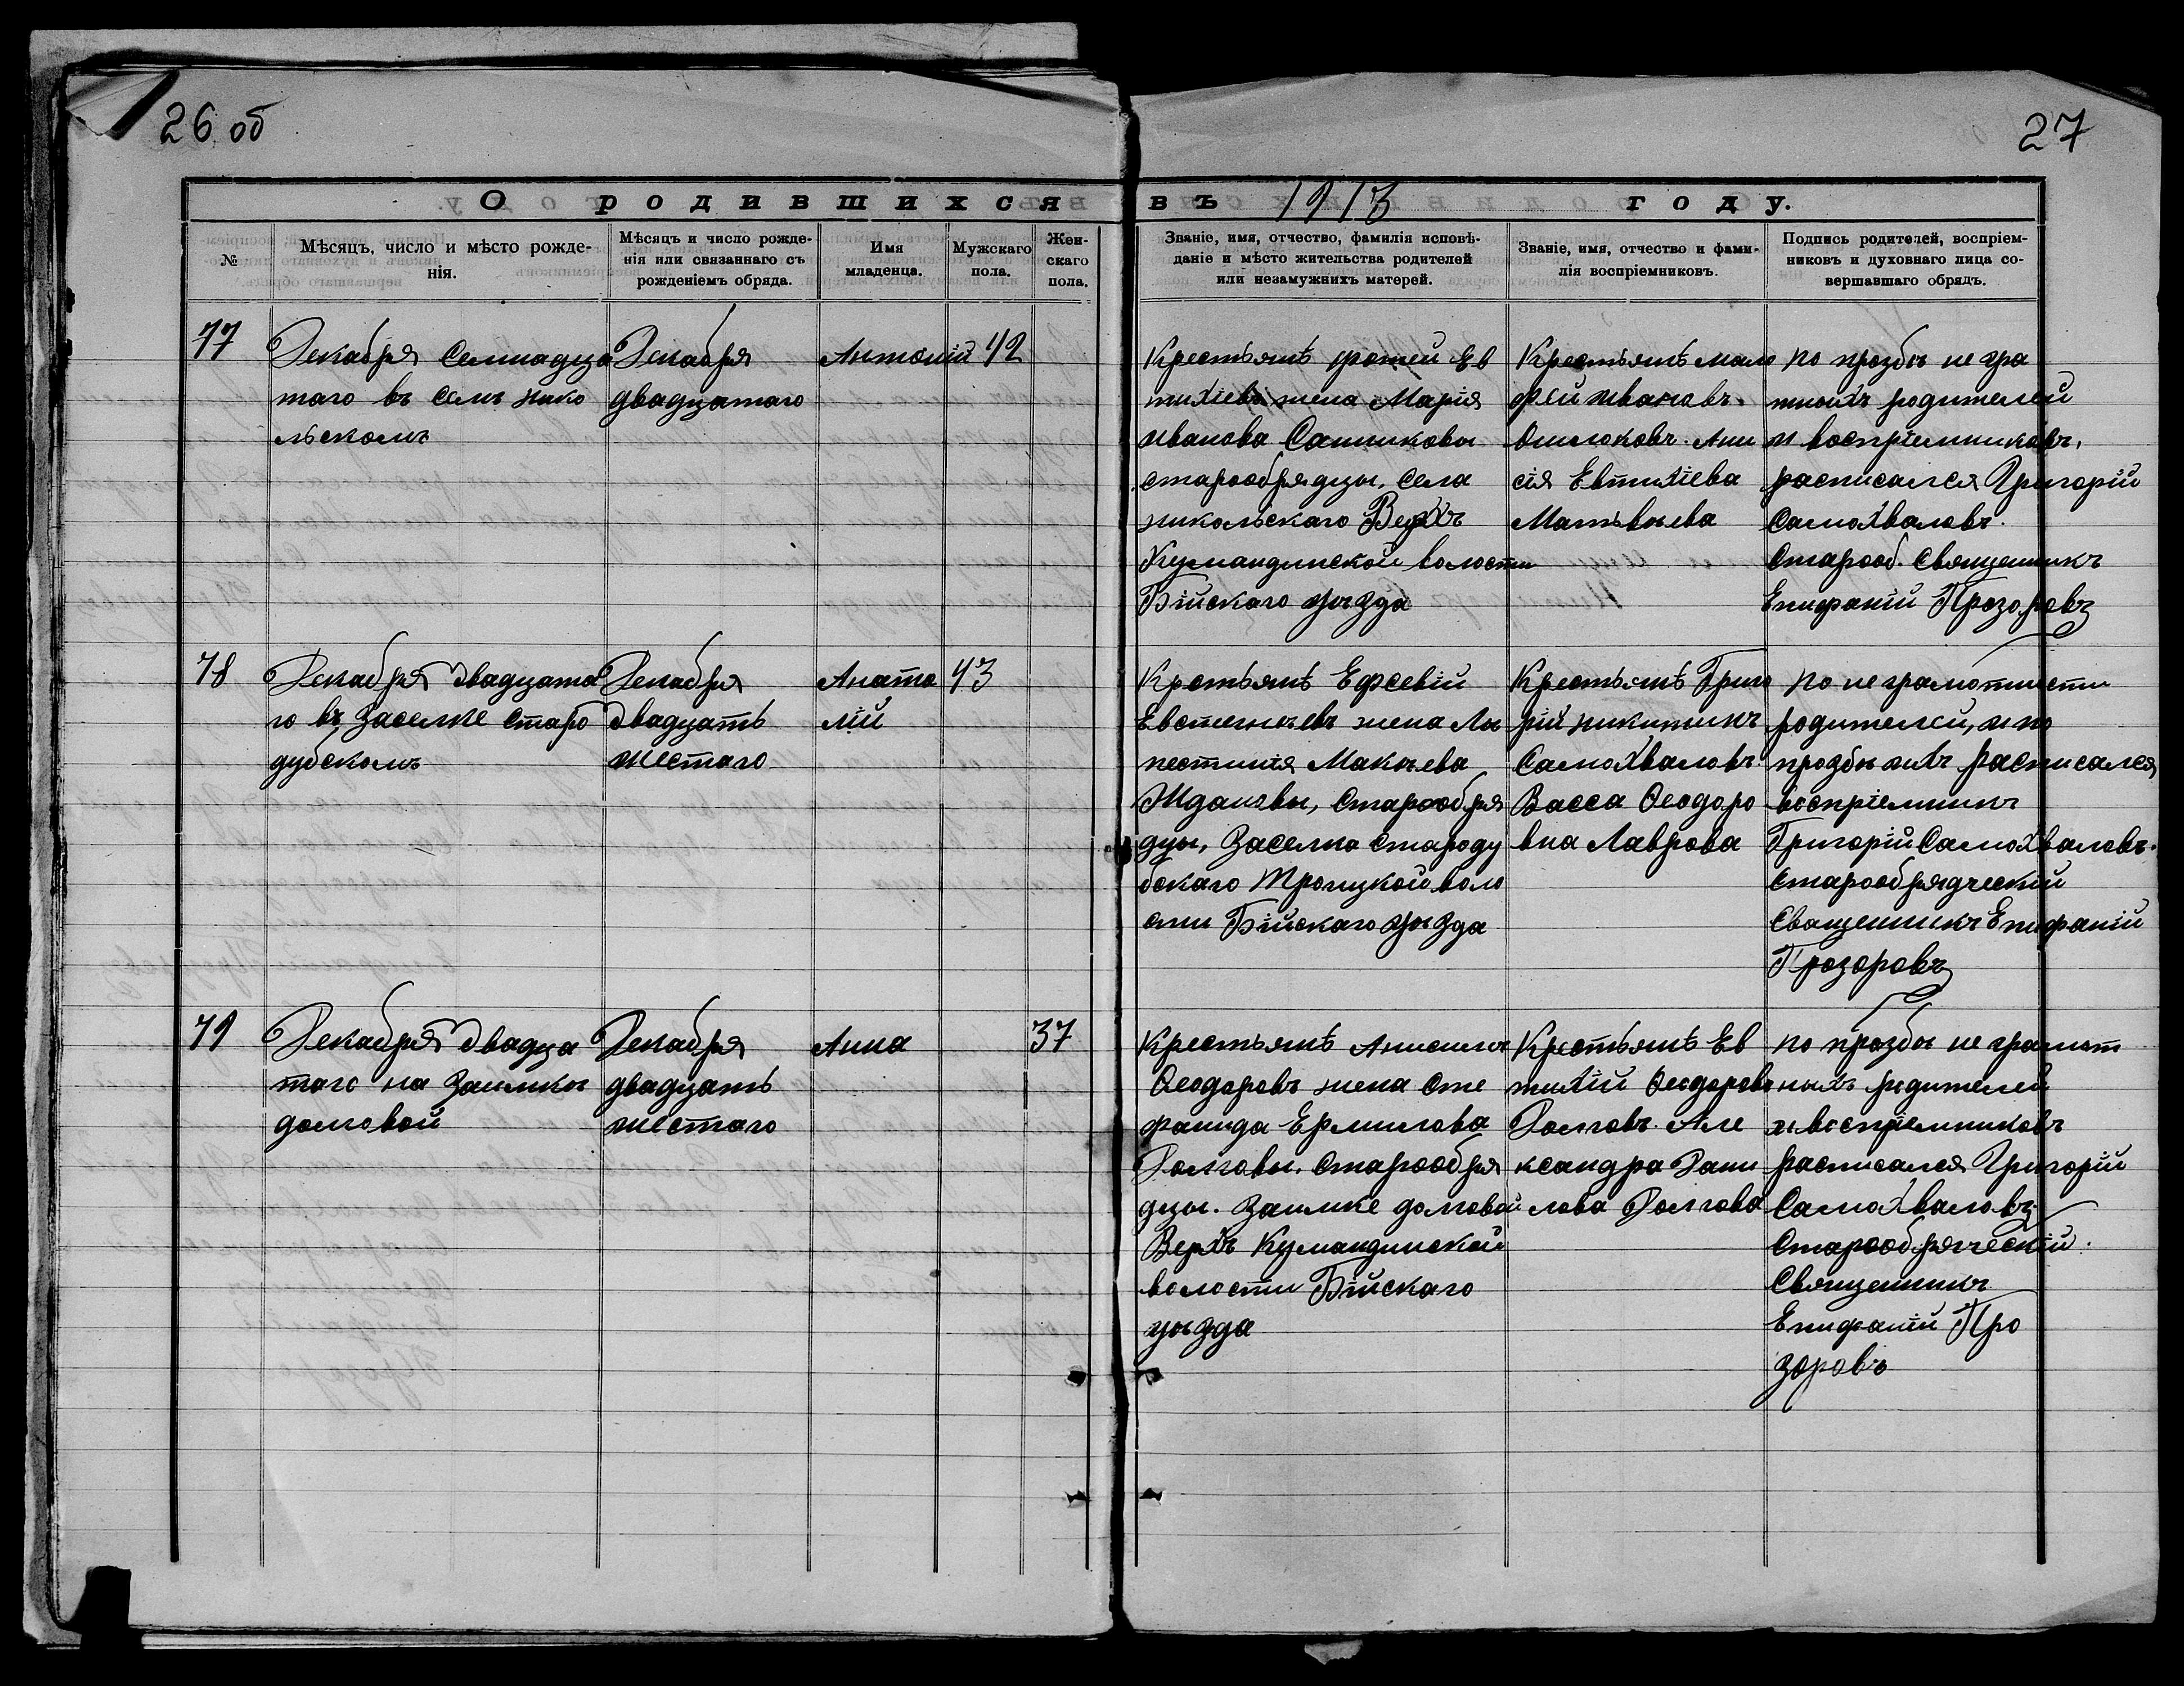 26 об
27
О родившихся въ 1913 году.
№
Мѣсяцъ, число и мѣсто рожде-
нія.
Мѣсяцъ и число рожде-
нія или связаннаго съ
рожденіемъ обряда.
Имя
младенца.
Мужскаго
пола.
Жен-
скаго
пола.
Званіе, имя, отчество, фамилія исповѣ-
даніе и мѣсто жительства родителей
или незамужнихъ матерей.
Званіе, имя, отчество и фами-
лія воспріемниковъ.
Подпись родителей, воспріем-
никовъ и духовнаго лица со-
вершавшаго обрядъ.
77
Декабря Семнадца
таго въ селѣ нико
льскомъ
Декабря
двадцатаго
Антоній
42
Крестьянѣ фотей Ев
тихіевъ жена Марія
иванова Санниковы
старообрядцы, села
никольскаго Верхъ
Кумандинской волости
Бійскаго уѣзда
Крестьянѣ мало
фей ивановъ.
Ани
сія Евтихіева
Матвѣева
по прозбѣ не гра
тныхъ родителей
и воспріемниковъ,
расписался Григорій
Самохваловъ.
Старооб. Священникъ
Епифаній Прозоровъ
78
Декабря двадцата
го въ заселке старо
дубскомъ
Декабря
двадцать
шестаго
Анато
лій
43
Крстьянѣ Ефсевій
Евстегнѣевъ жена Ан
пестинія Макѣева
Ждановы, старообря
дцы, Заселка староду
бскаго Троицкой воло
сти Бійскаго уѣзда
Крестьянѣ Григо
рій никитинъ
Самохваловъ.
Васса Ѳеодоро
вна Лаврова
по не грамотности
родителей, и по
прозбѣ ихъ расписался
воспріемникъ
Григорій Самохваловъ.
Старообрядческій
Священникъ Епифаній
Прозоровъ
79
Декабря двадца
таго на заимкѣ
долговой
Декабря
двадцать
шестаго
Анна
37
Крестьянѣ Анисимъ
Ѳеодоровъ жена сте
фанида Ермилова
Долговы. Старообря
дцы. заимке долговой
Верхъ Кумандинской
волости Бійскаго
уѣзда
Крестьянѣ Ев
тихій Ѳеодоровъ
Долговъ. Але
ксандра Дани
лова Долгова
по прозбѣ не грамот
ныхъ родителей
и воспріемниковъ
расписался Григорій
Самохваловъ.
Старообрячéскій.
Священникъ
Епифаній Про
зоровъ